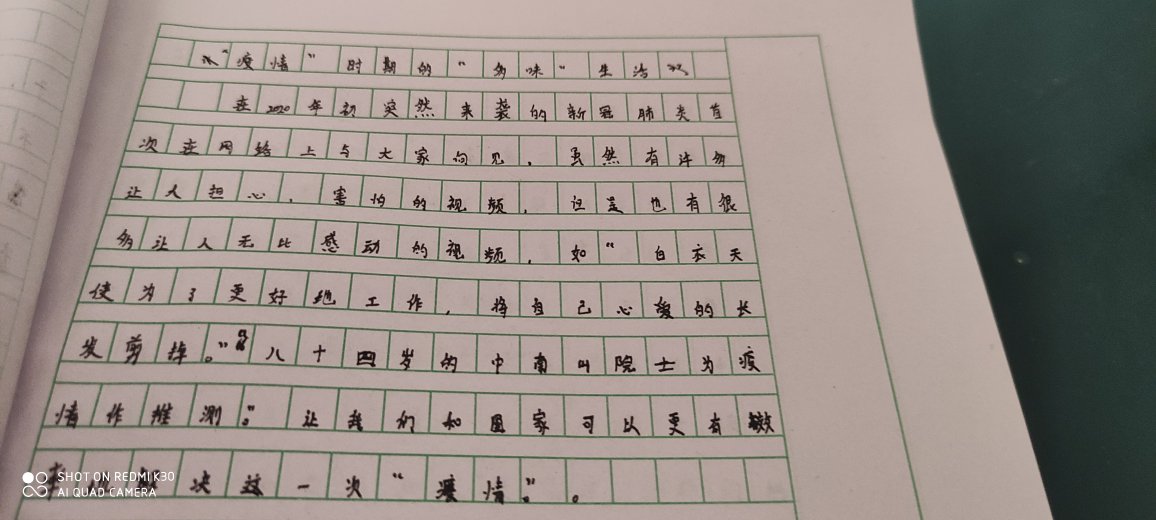 《“疫情”时期的“多味”生活》
在2020年初突然来袭的新冠肺炎首
次在网络上与大家向见，虽然有许多
让人担心，害怕的视频，但是也有很
多让人无比感动的视频，如“白衣天
使为了更好地工作，将自己心爱的长
发剪掉。”“八十四岁的中南山院士为疫
情作推测”。让我们和国家可以更有
决这一次“疫情”。
SHOT ON REDMI K30
AI QUAD CAMERA